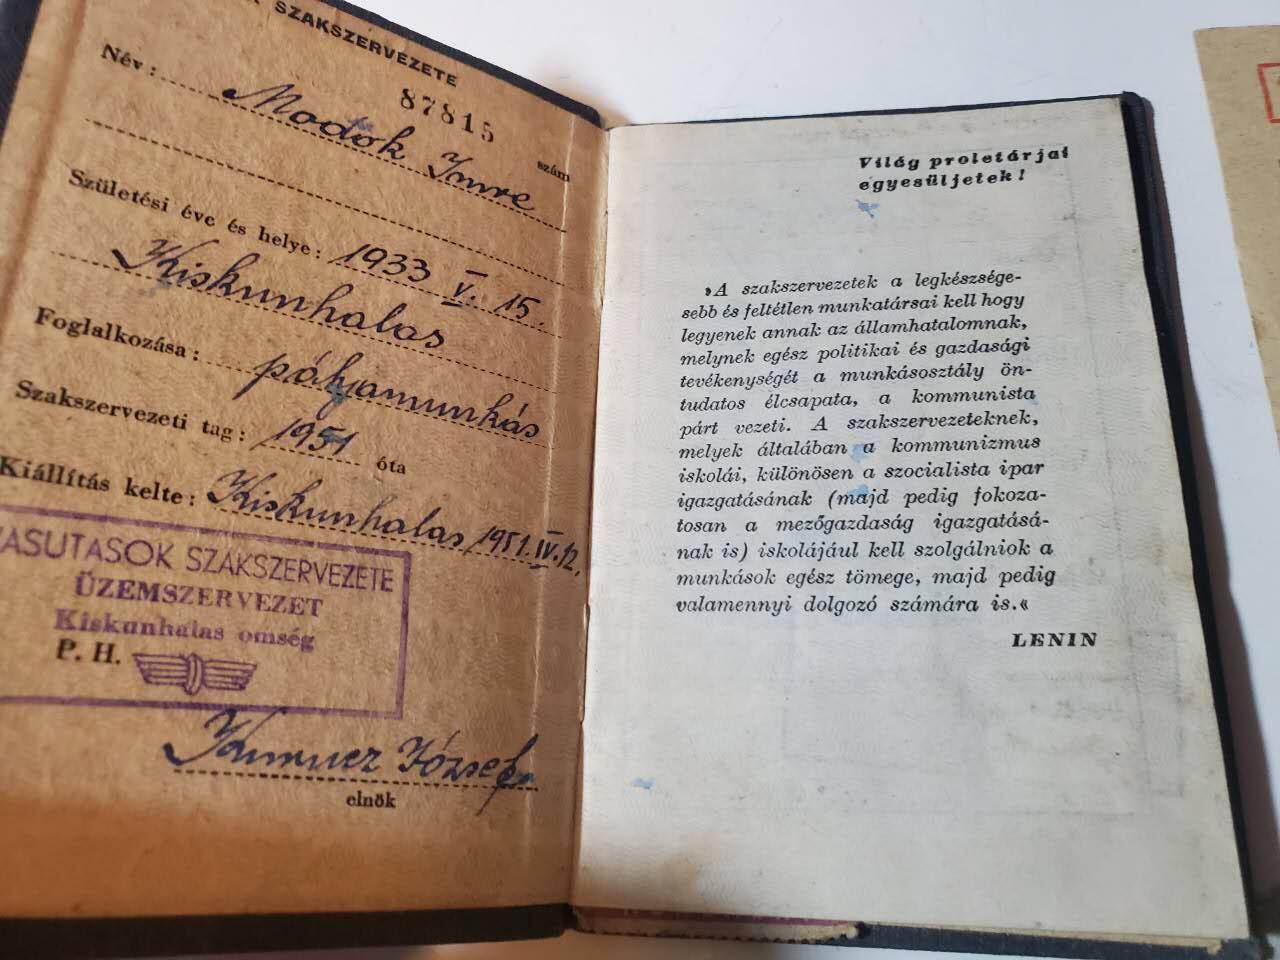 SZAKSZERVEZETE
87815 szám
Név: Modok Imre
Születési éve és helye: 1933 V. 15.
Kiskunhalas
Foglalkozása: pályamunkás
Szakszervezeti tag: 1951 óta
Kiállítás kelte: Kiskunhalas 1951.IV.12.
VASUTASOK SZAKSZERVEZETE
ÜZEMSZERVEZET
Kiskunhalas omség
P. H.
József
elnök
Világ proletárjai
egyesüljetek!
»A szakszervezetek a legkészsége-
sebb és feltétlen munkatársai kell hogy
legyenek annak az államhatalomnak,
melynek egész politikai és gazdasági
tevékenységét a munkásosztály ön-
tudatos élcsapata, a kommunista
párt vezeti. A szakszervezeteknek,
melyek általában a kommunizmus
iskolái, különösen a szocialista ipar
igazgatásának (majd pedig fokoza-
tosan a mezőgazdaság igazgatásá-
nak is) iskolájául kell szolgálniok a
munkások egész tömege, majd pedig
valamennyi dolgozó számára is.«
LENIN